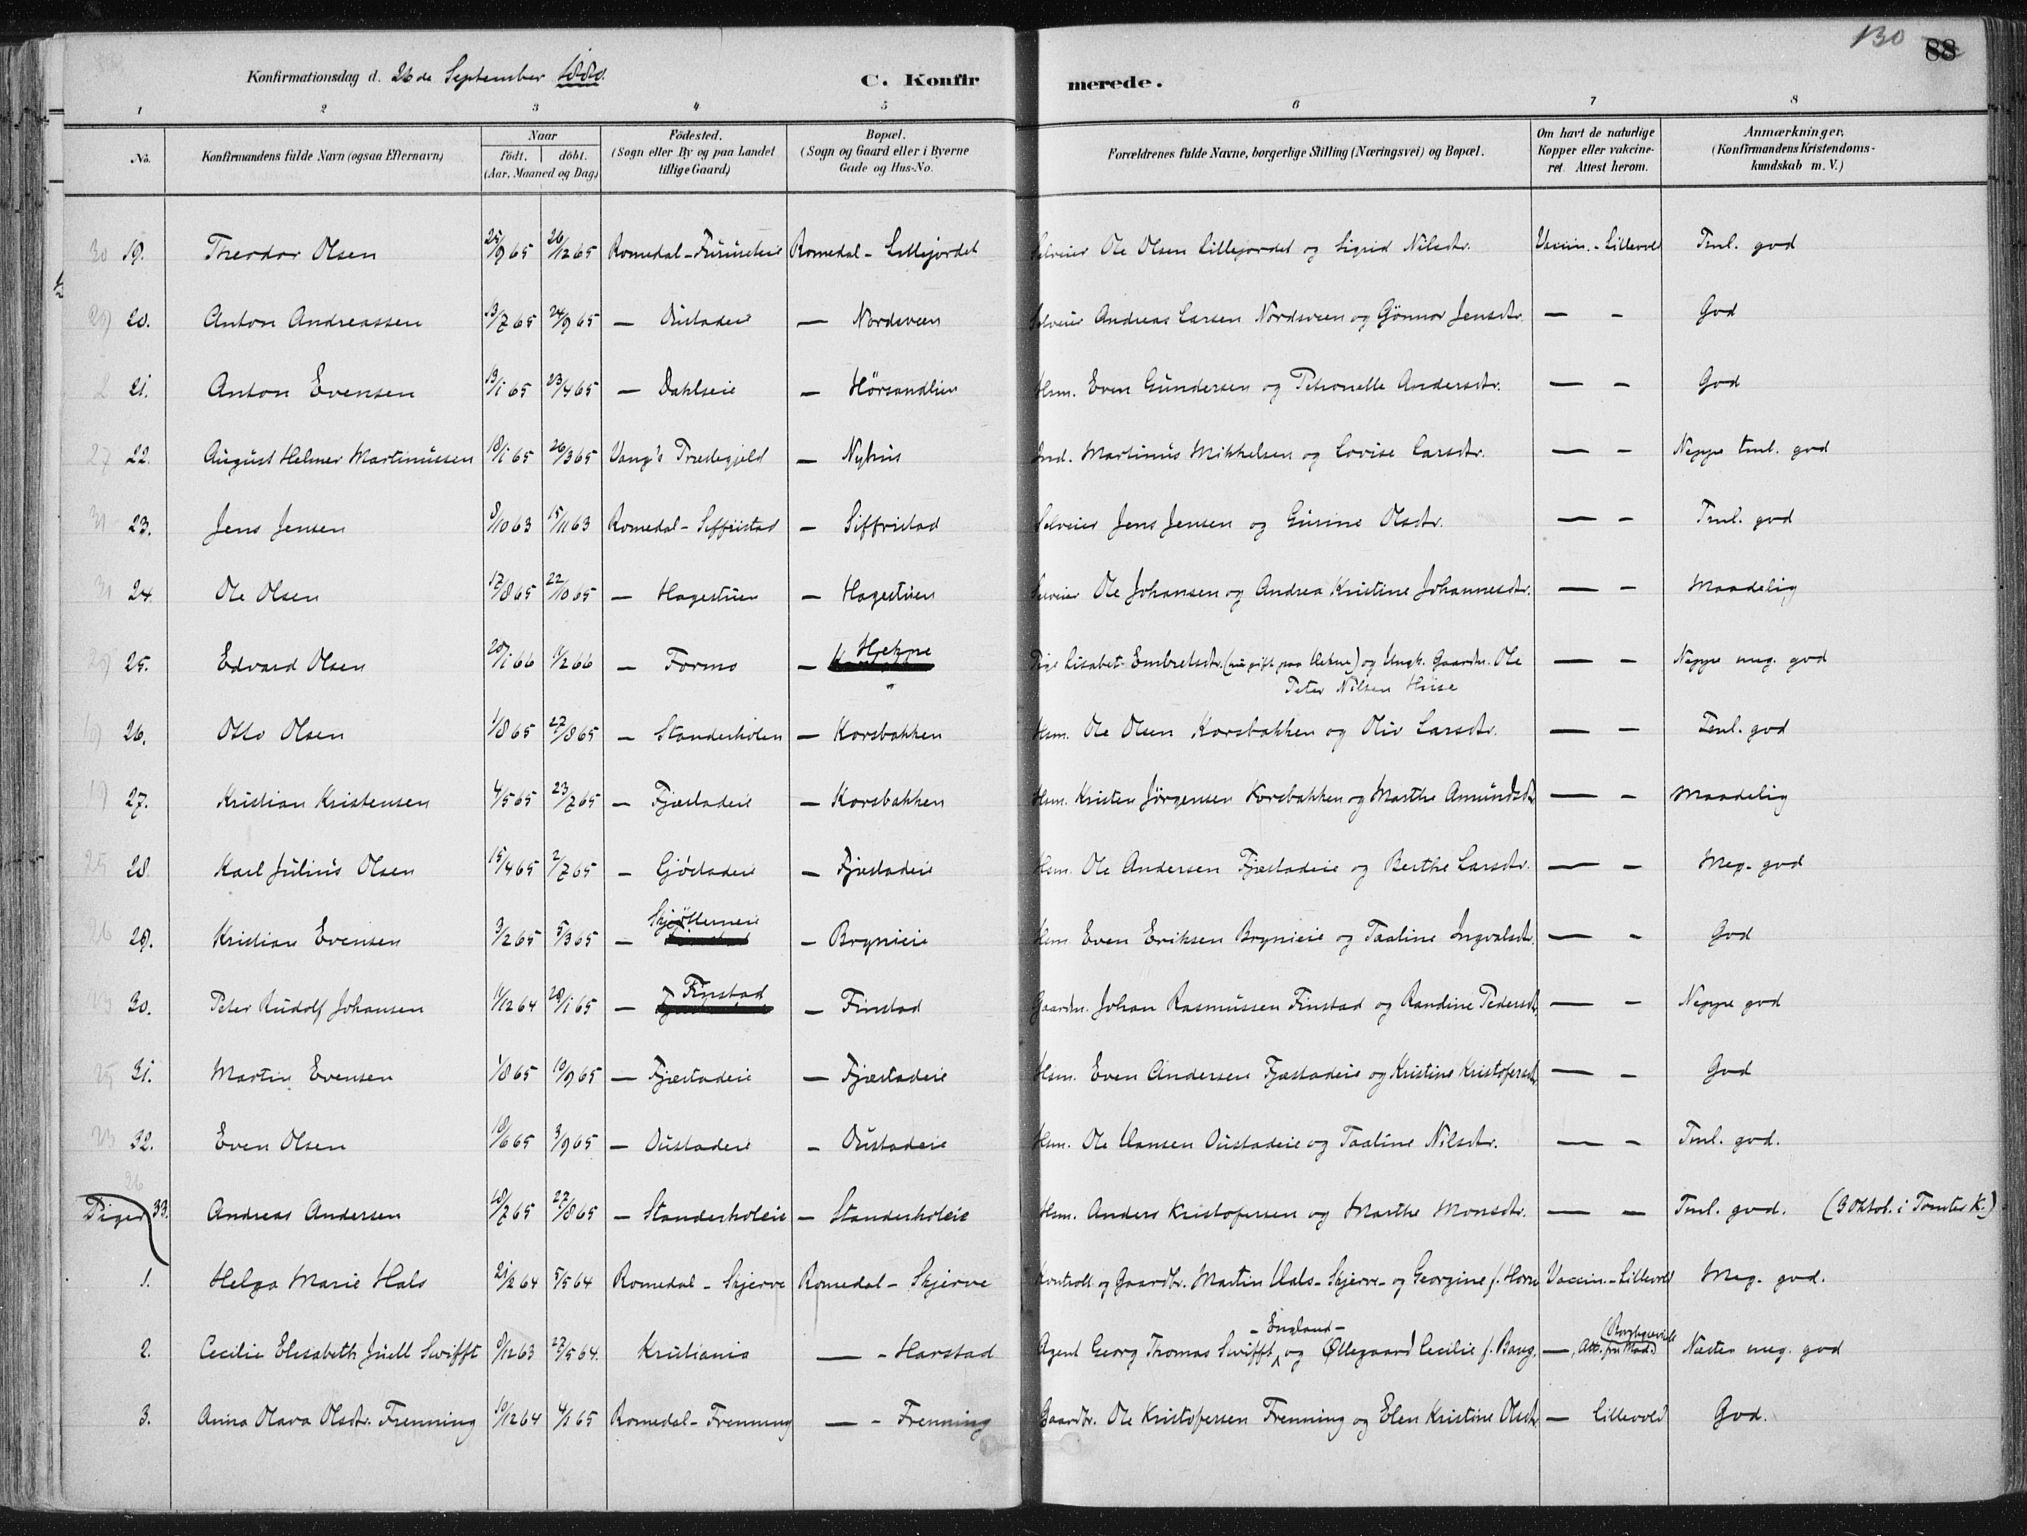 130 88
Konfirmationsdag d. 26de September 1880. C. Konfirmerede.
1 2 3 4 5 6 7 8
No. Konfirmandens fulde Navn (ogsaa Efternavn) Naar födt. döbt. (Aar, Maaned og Dag) Födested. (Sogn eller By og paa Landet tillige Gaard) Bopæl. (Sogn og Gaard eller i Byerne Gade og Hus-No. Forældrenes fulde Navne, borgerlige Stilling (Næringsvei) og Bopæl. Om havt de naturlige Kopper eller vakcineret. Attest herom. Anmærkninger. (Konfirmandens Kristendomskundskab m. V.)
19. Theodor Olsen 25/9 65 26/12 65 Romedal - Romedal - Lillejordet Selveier Ole Olsen Lillejordet og Sigrid Nilsdtr. Vaccin. - Lillevold Tml. god
20. Anton Andreassen 13/7 65 24/9 65 — Oustadeie — Nordsveen Selveier Andreas Larsen Nordsveen og Gönnor Jensdtr. — - God
21. Anton Evensen 13/1 65 23/4 65 — Dahlseie — Hörsandlien Hsm. Even Gundersen og Petronelle Andersdtr. — - God
22. August Helmer Martinussen 18/1 65 26/3 65 Vang's Præstegjeld — Nyhus Ind. Martinus Mikkelsen og Lovise Larsdtr. — - Neppe tml. god
23. Jens Jensen 8/10 63 15/11 63 Romedal - Siffristad — Siffristad Selveier Jens Jensen og Gurine Olsdtr. — - Tml. god
24. Ole Olsen 17/8 65 22/10 65 — Hagestuen — Hagestuen Selveier Ole Johansen og Andrea Kristine Johannesdtr. — - Maadelig
25. Edvard Olsen 20/1 66 11/2 66 — Formo — Hekne Pige Lisabet Embretsdtr. (nu gift paa Hekne) og Ungk. Gaardm. Ole Peter Nilsen Huse — - Neppe meg. god
26. Otto Olsen 1/8 65 27/8 65 — Standerholen — Korsbakken Hsm. Ole Olsen Korsbakken og Oliv Larsdtr. — - Tml. god
27. Kristian Kristensen 4/5 65 23/7 65 — Fjæstadeie — Korsbakken Hsm. Kristen Jörgensen Korsbakken og Marthe Amundsdtr — - Maadelig
28. Karl Julius Olsen 15/4 65 2/7 65 — Gjöstadeie — Fjæstadeie Hsm. Ole Andersen Fjæstadeie og Berthe Larsdtr. — - Meg. god
29. Kristian Evensen 3/2 65 5/3 65 — Skjötterneie — Brynieie Hsm Even Eriksen Brynieie og Taaline Ingvalsdtr. — - God
30. Peter Rudolf Johansen 11/12 64 28/1 65 — Finstad — Finstad Gaardm. Johan Rasmussen Finstad og Randine Pedersdtr. — - Neppe god
31. Martin Evensen 1/8 65 10/9 65 — Fjæstadeie — Fjæstadeie Hsm. Even Andersen Fjæstadeie og Kristine Kristofersdtr. — - God
32. Even Olsen 10/6 65 3/9 65 — Oustadeie — Oustadeie Hsm. Ole Hansen Oustadeie og Taaline Nilsdtr. — - Tml. god.
33. Andreas Andersen 18/7 65 27/8 65 — Standerholeie — Standerholeie Hsm. Anders Kristofersen og Marthe Monsdtr. — — Tml. god. (3 Oktob. i Tomter K.)
Piger
1. Helga Marie Hals 21/2 64 5/5 64 Romedal - Skjerve Romedal - Skjerve Kontroll. og Gaardbr. Martin Hals - Skjerve - og Georgine f. Horn Vaccin. - Lillevold Meg. god.
2. Cecilie Elisabeth Juell Swifft 8/12 63 22/5 64. Kristiania — - Harstad Agent Georg Thomas Swifft - England - og Öllegaard Cecilie f. Bang. —, Att. Næsten meg. god
3. Anna Olava Olsdtr. Frenning 10/12 64 4/1 65 Romedal - Frenning — - Frenning Gaardbr. Ole Kristofersen Frenning og Elen Kristine Olsdtr — Lillevold God.